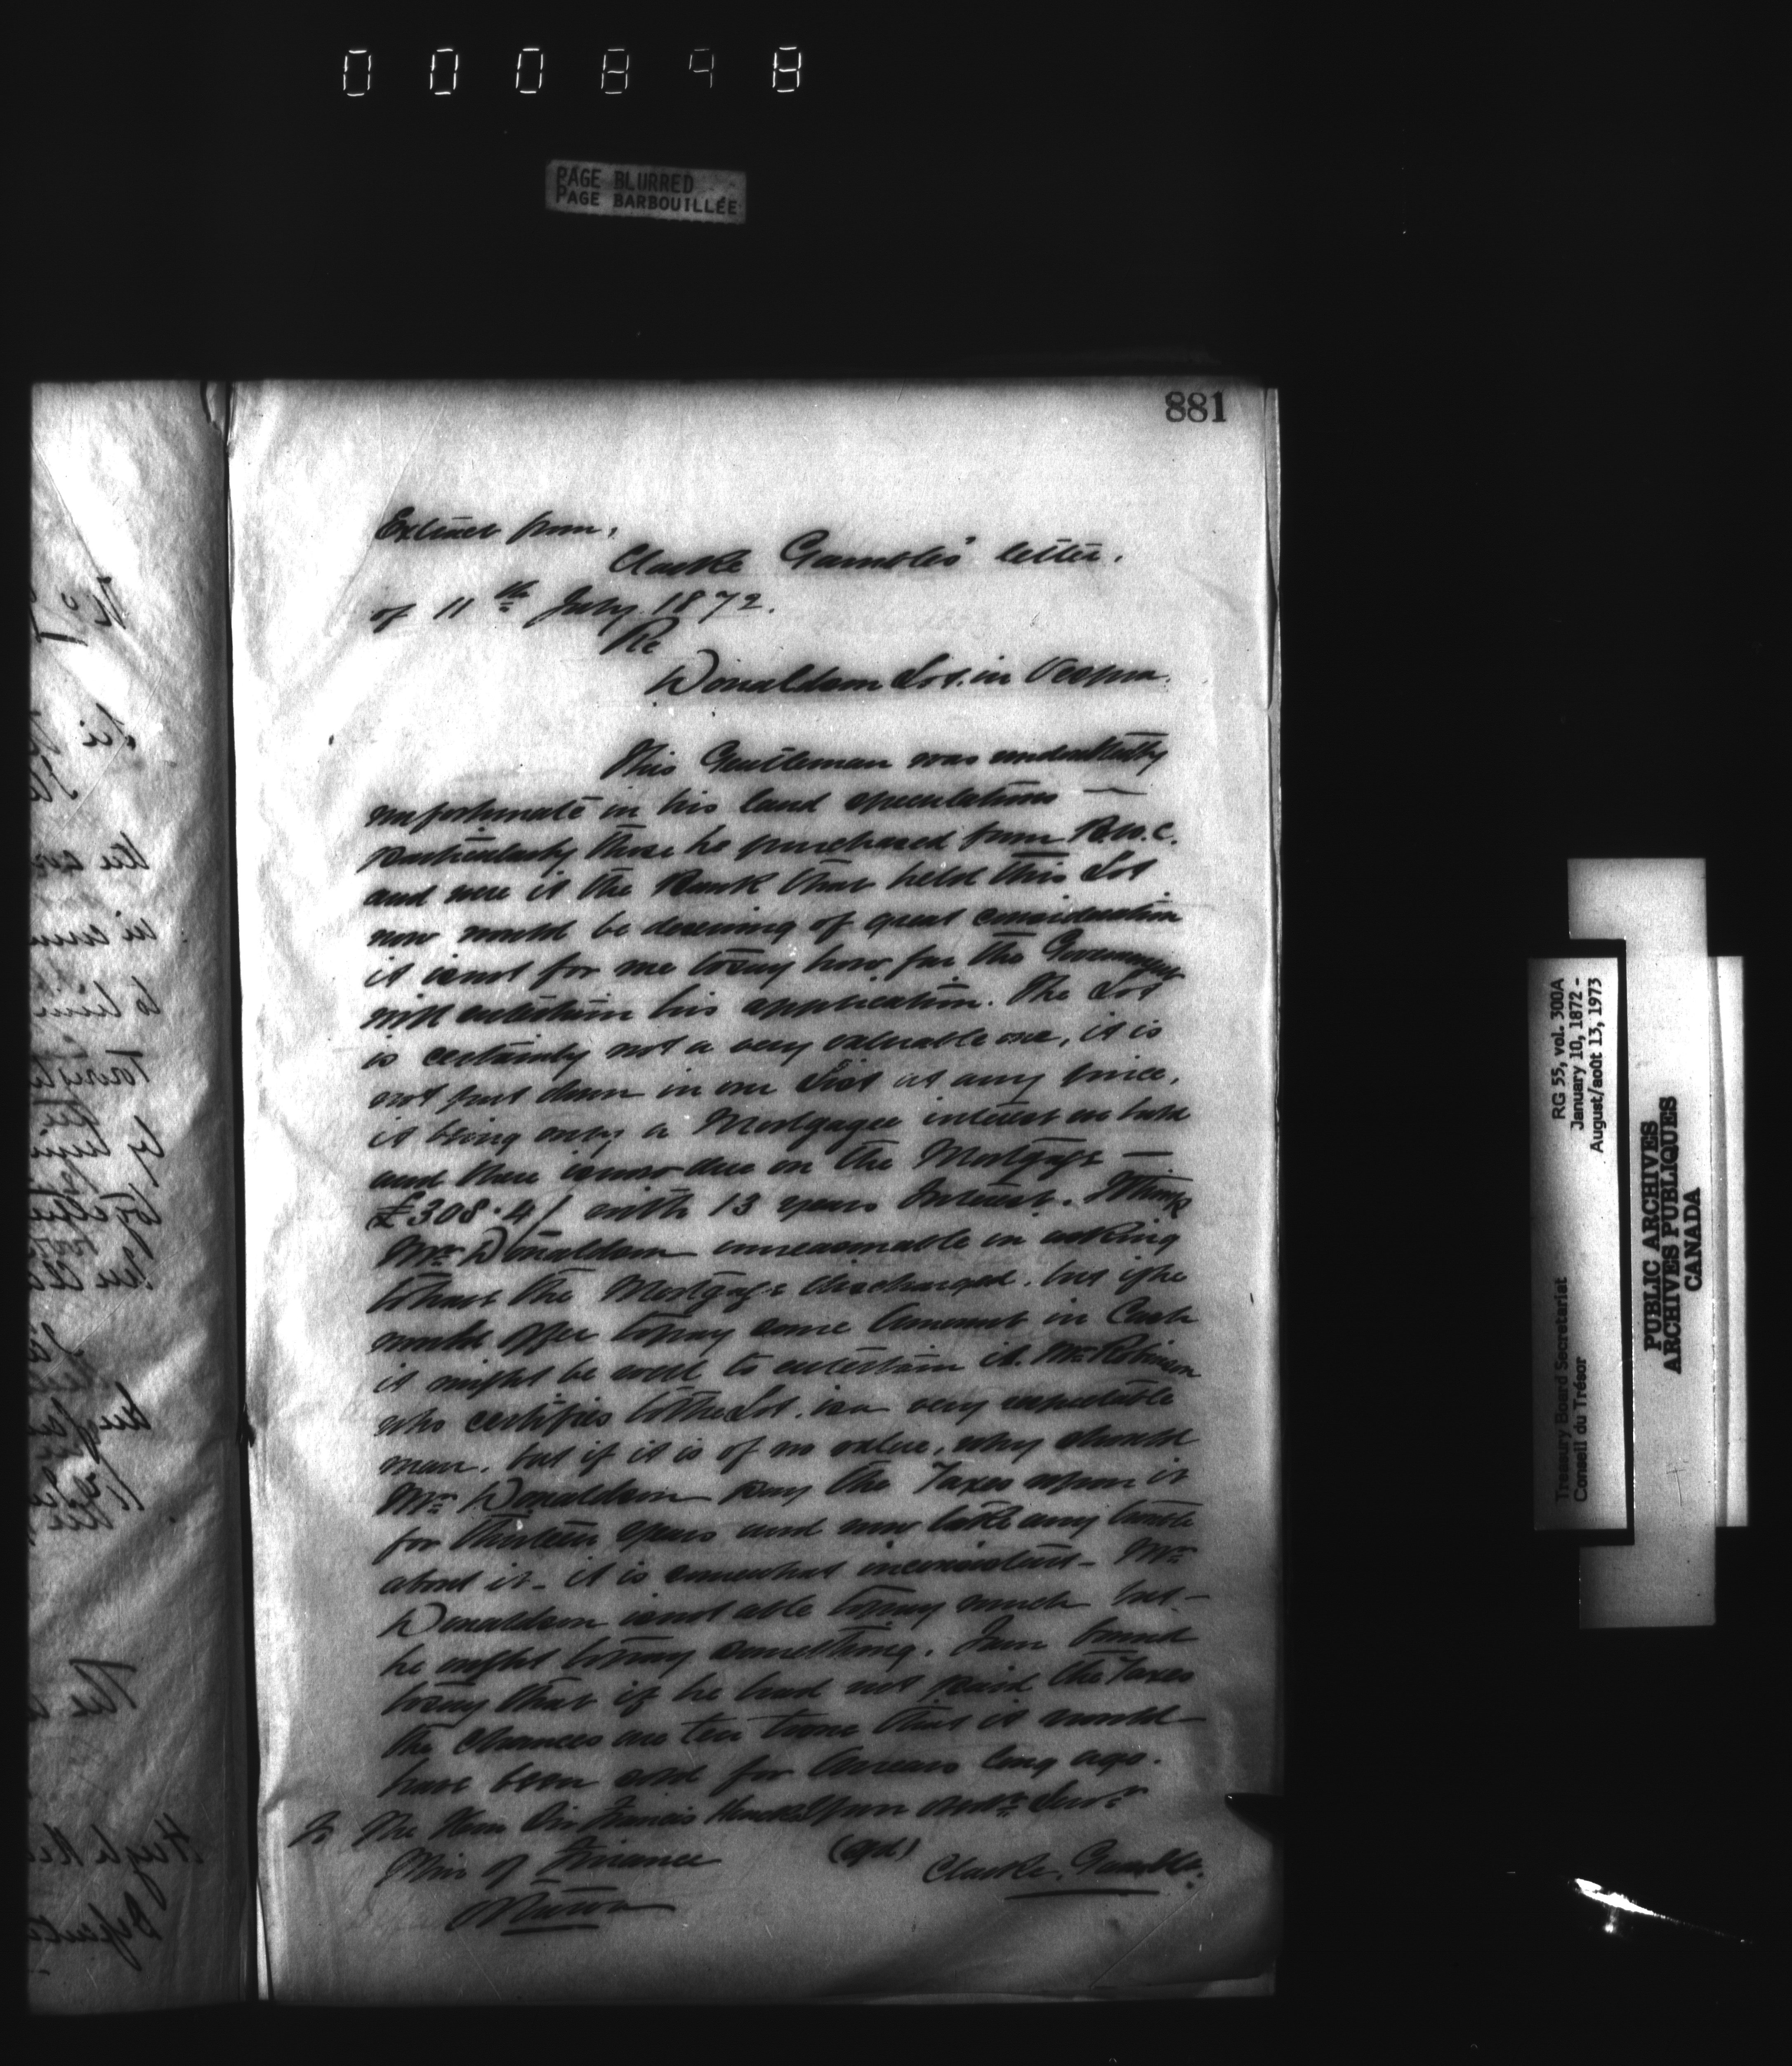 000898
PAGE BLURRED
PAGE BARBOUILLÉE
881
Extract from,
Clarke Gamble's letter.
of 11th July. 1872.
Re
Donaldson Lot. in Vespra.
This Gentleman was undoubtedly
unfortunate in his land speculations —
particularly those he purchased from B.U.C.
and were it the Bank that held this Lot
now would be deserving of great consideration
it is not for me to say how far the Government
will entertain his application. The Lot
is certainly not a very valuable one, it is
not put down in our List at any price,
it being only a Mortgagee interest we hold
and there is now due on the Mortgage —
£308.4/ with 13 years Interest. I think
Mr Donaldson unreasonable in asking
to have the Mortgage discharged. but if he
would offer to pay some Amount in Cash
it might be well to entertain it. Mr Robinson
who certifies to the Lot. is a very respectable
man, but if it is of no value, why should
Mr Donaldson pay the Taxes upon it
for thirteen years and now take any trouble
about it - it is somewhat inconsistent - Mr
Donaldson is not able to pay much but -
he ought to pay something. I am bound
to say that if he had not paid the Taxes
the chances are ten to one that it would
have been sold for Arrears long ago.
To The Hon Sir Francis Hincks Your Obdt Servt
Min of Finance (sgd) Clarke. Gamble.
Ottawa
RG 55, vol. 300A
January 10, 1872 -
August/août 13, 1973
Treasury Board Secretariat
Conseil du Trésor
PUBLIC ARCHIVES
ARCHIVES PUBLIQUES
CANADA